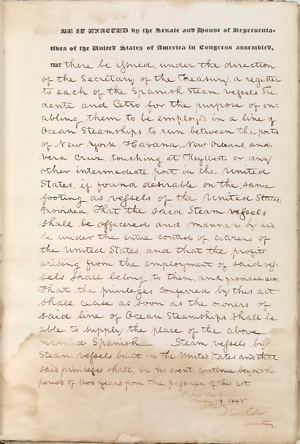 BE IT ENACTED by the Senate and House of Representa-
tives of the United States of America in Congress assembled,
THAT there be issued, under the direction
of the Secretary of the Treasury, a register
to each of the Spanish Steam vessels
and for the purpose of en-
abling them to be employed in a line of
Ocean Steamships to run between the ports
of New York, Havana, New Orleans, and
Vera Cruz, touching at or any
other intermediate port in the United
States, if found desirable on the same
footing as vessels of the United States;
Provided That the said Steam vessels
shall be officered and manned by and
be under the entire control of citizens of
the United States, and that the profits
arising from the employment of said ves-
sels shall belong to them, and
That the privileges conferred by this act
shall cease as soon as the owners of
said line of Ocean Steamships shall be
able to supply the place of the above
named Spanish Steam vessels by
Steam vessels built in the United States and the
said privileges shall in no event continue beyond the
period of two years from the passage of this act